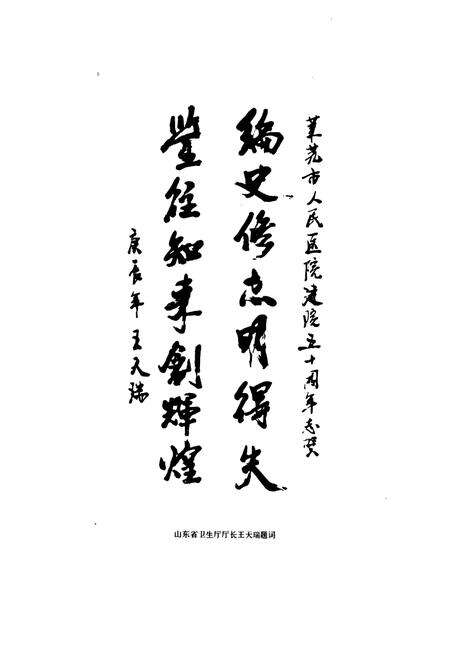 莱芜市人民医院建院五十周年志贺
编史修志明得失
鉴往知来創輝煌
庚辰年 王天瑞
山东省卫生厅厅长王天瑞题词